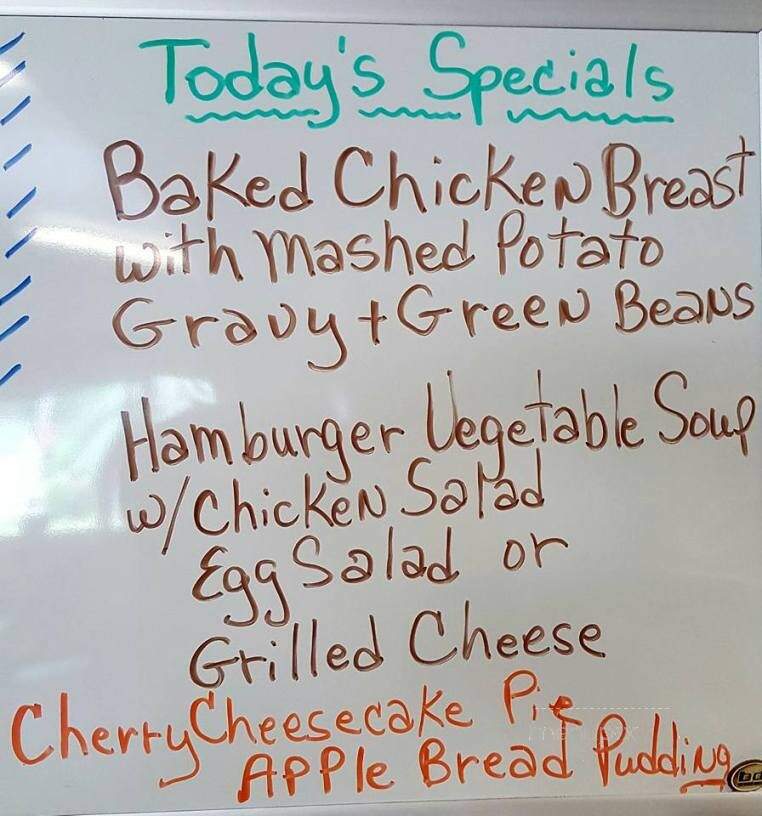 Today's Specials
Baked Chicken Breast
with mashed Potato
Gravy + Green Beans
Hamburger Vegetable Soup
w/ Chicken Salad
Egg Salad or
Grilled Cheese
Cherry Cheesecake Pie
Apple Bread Pudding